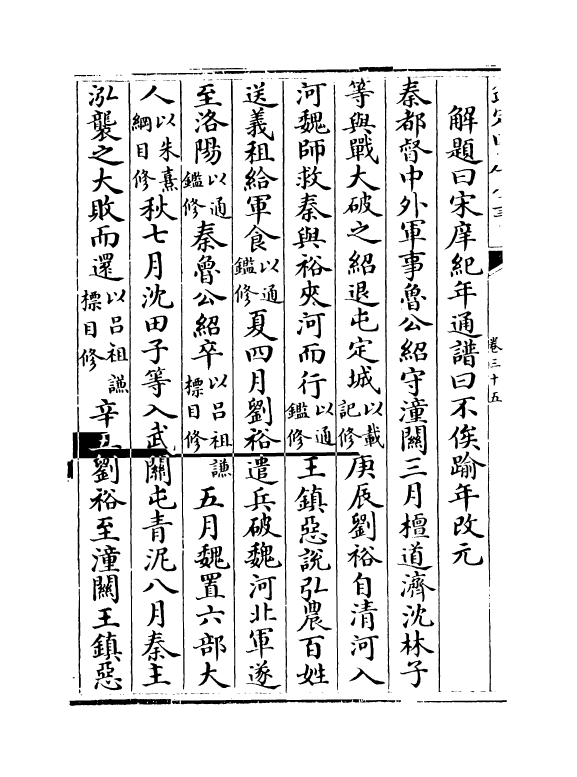 解題曰宋庠紀年通譜曰不俟踰年改元
秦都督中外軍事魯公紹守潼關三月檀道濟沈林子
等與戰大破之紹退屯定城以載記修庚辰劉裕自清河入
河魏師救秦與裕夾河而行以通鑑修王鎮惡説弘農百姓
送義租給軍食以通鑑修夏四月劉裕遣兵破魏河北軍遂
至洛陽以通鑑修秦魯公紹卒以吕祖謙標目修五月魏置六部大
人以朱熹綱目修秋七月沈田子等入武關屯青泥八月秦主
泓襲之大敗而還以吕祖謙標目修辛丑劉裕至潼關王鎮惡
卷三十五